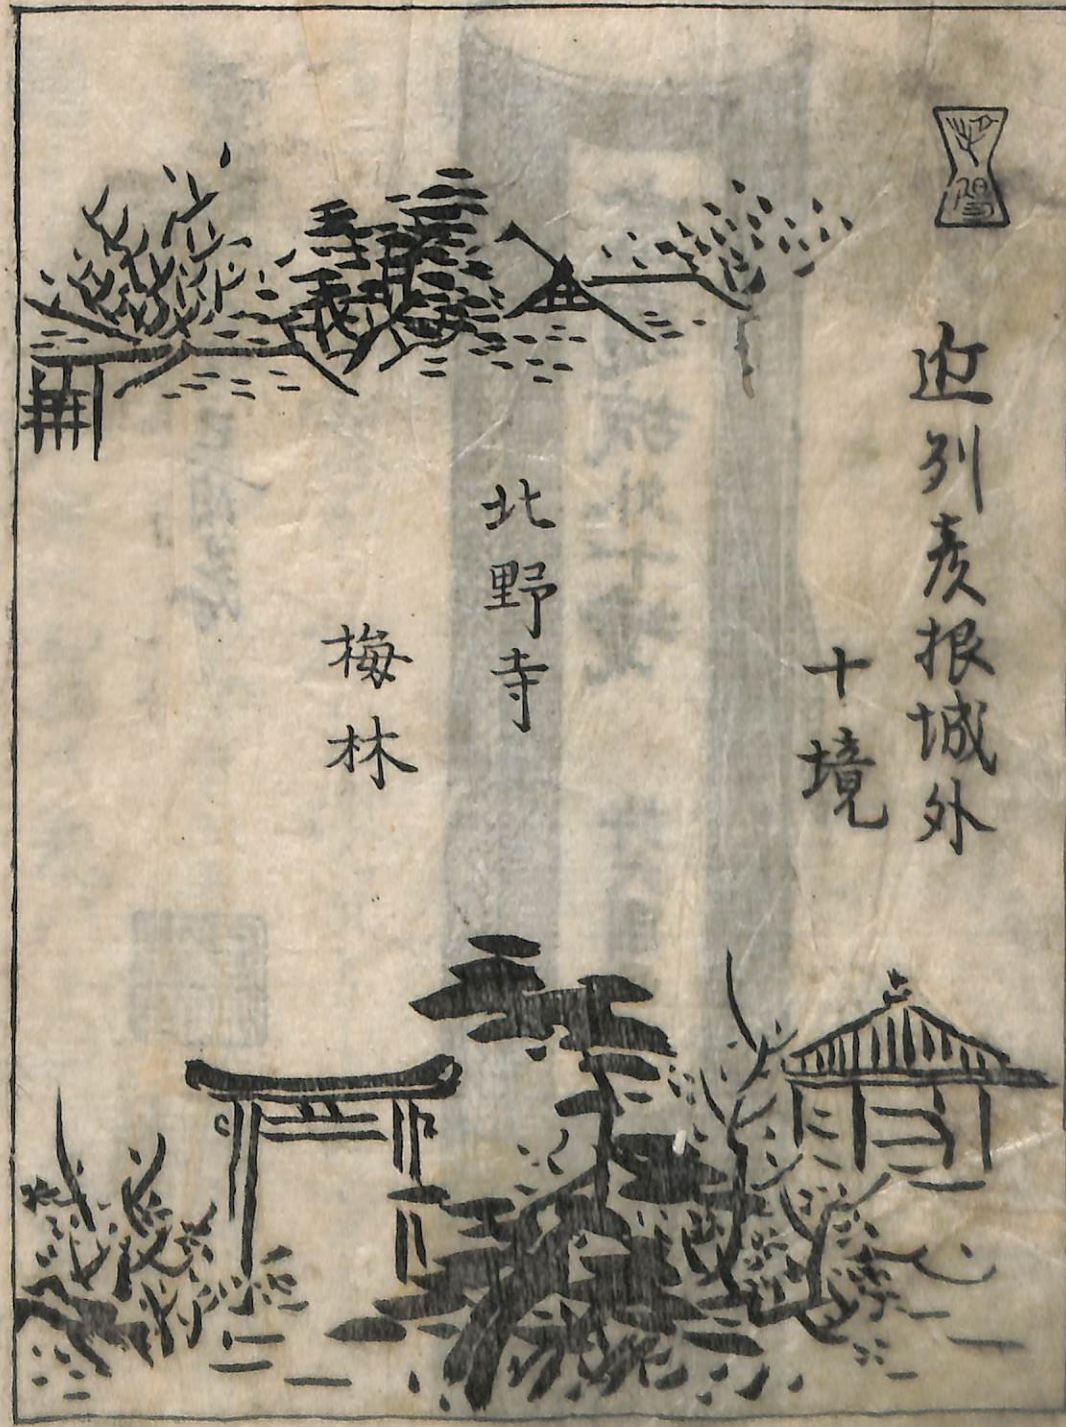 近列彦根城外
十境
北野寺
梅林